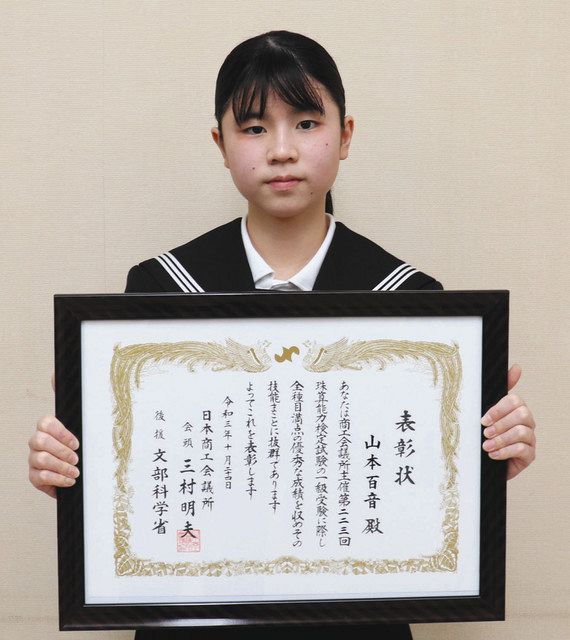 表彰状
山本百音 殿
あなたは商工会議所主催第二二三回
珠算能力検定試験の一級受験に際し
全種目満点の優秀な成績を収めその
技能まことに抜群であります
よってこれを表彰します
令和三年十月二十四日
日本商工会議所
会頭 三村明夫
後援 文部科学省